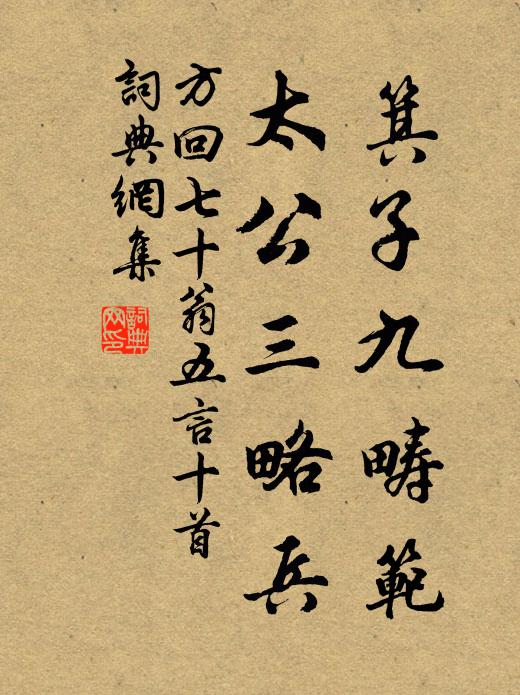 箕子九疇範
太公三略兵
方回七十翁五言十首
詞典網集
詞典网印